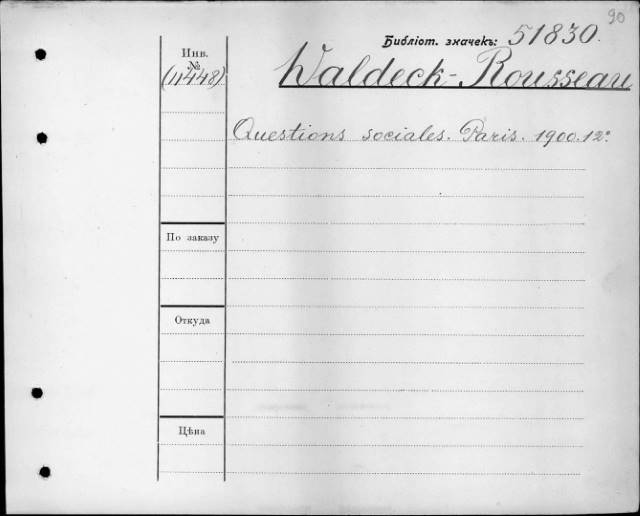 90
Библіот. значекъ: 51830.
Инв.
№
(11448)
Waldeck-Rousseau
Questions sociales. Paris. 1900. 12°
По заказу
Откуда
Цѣна